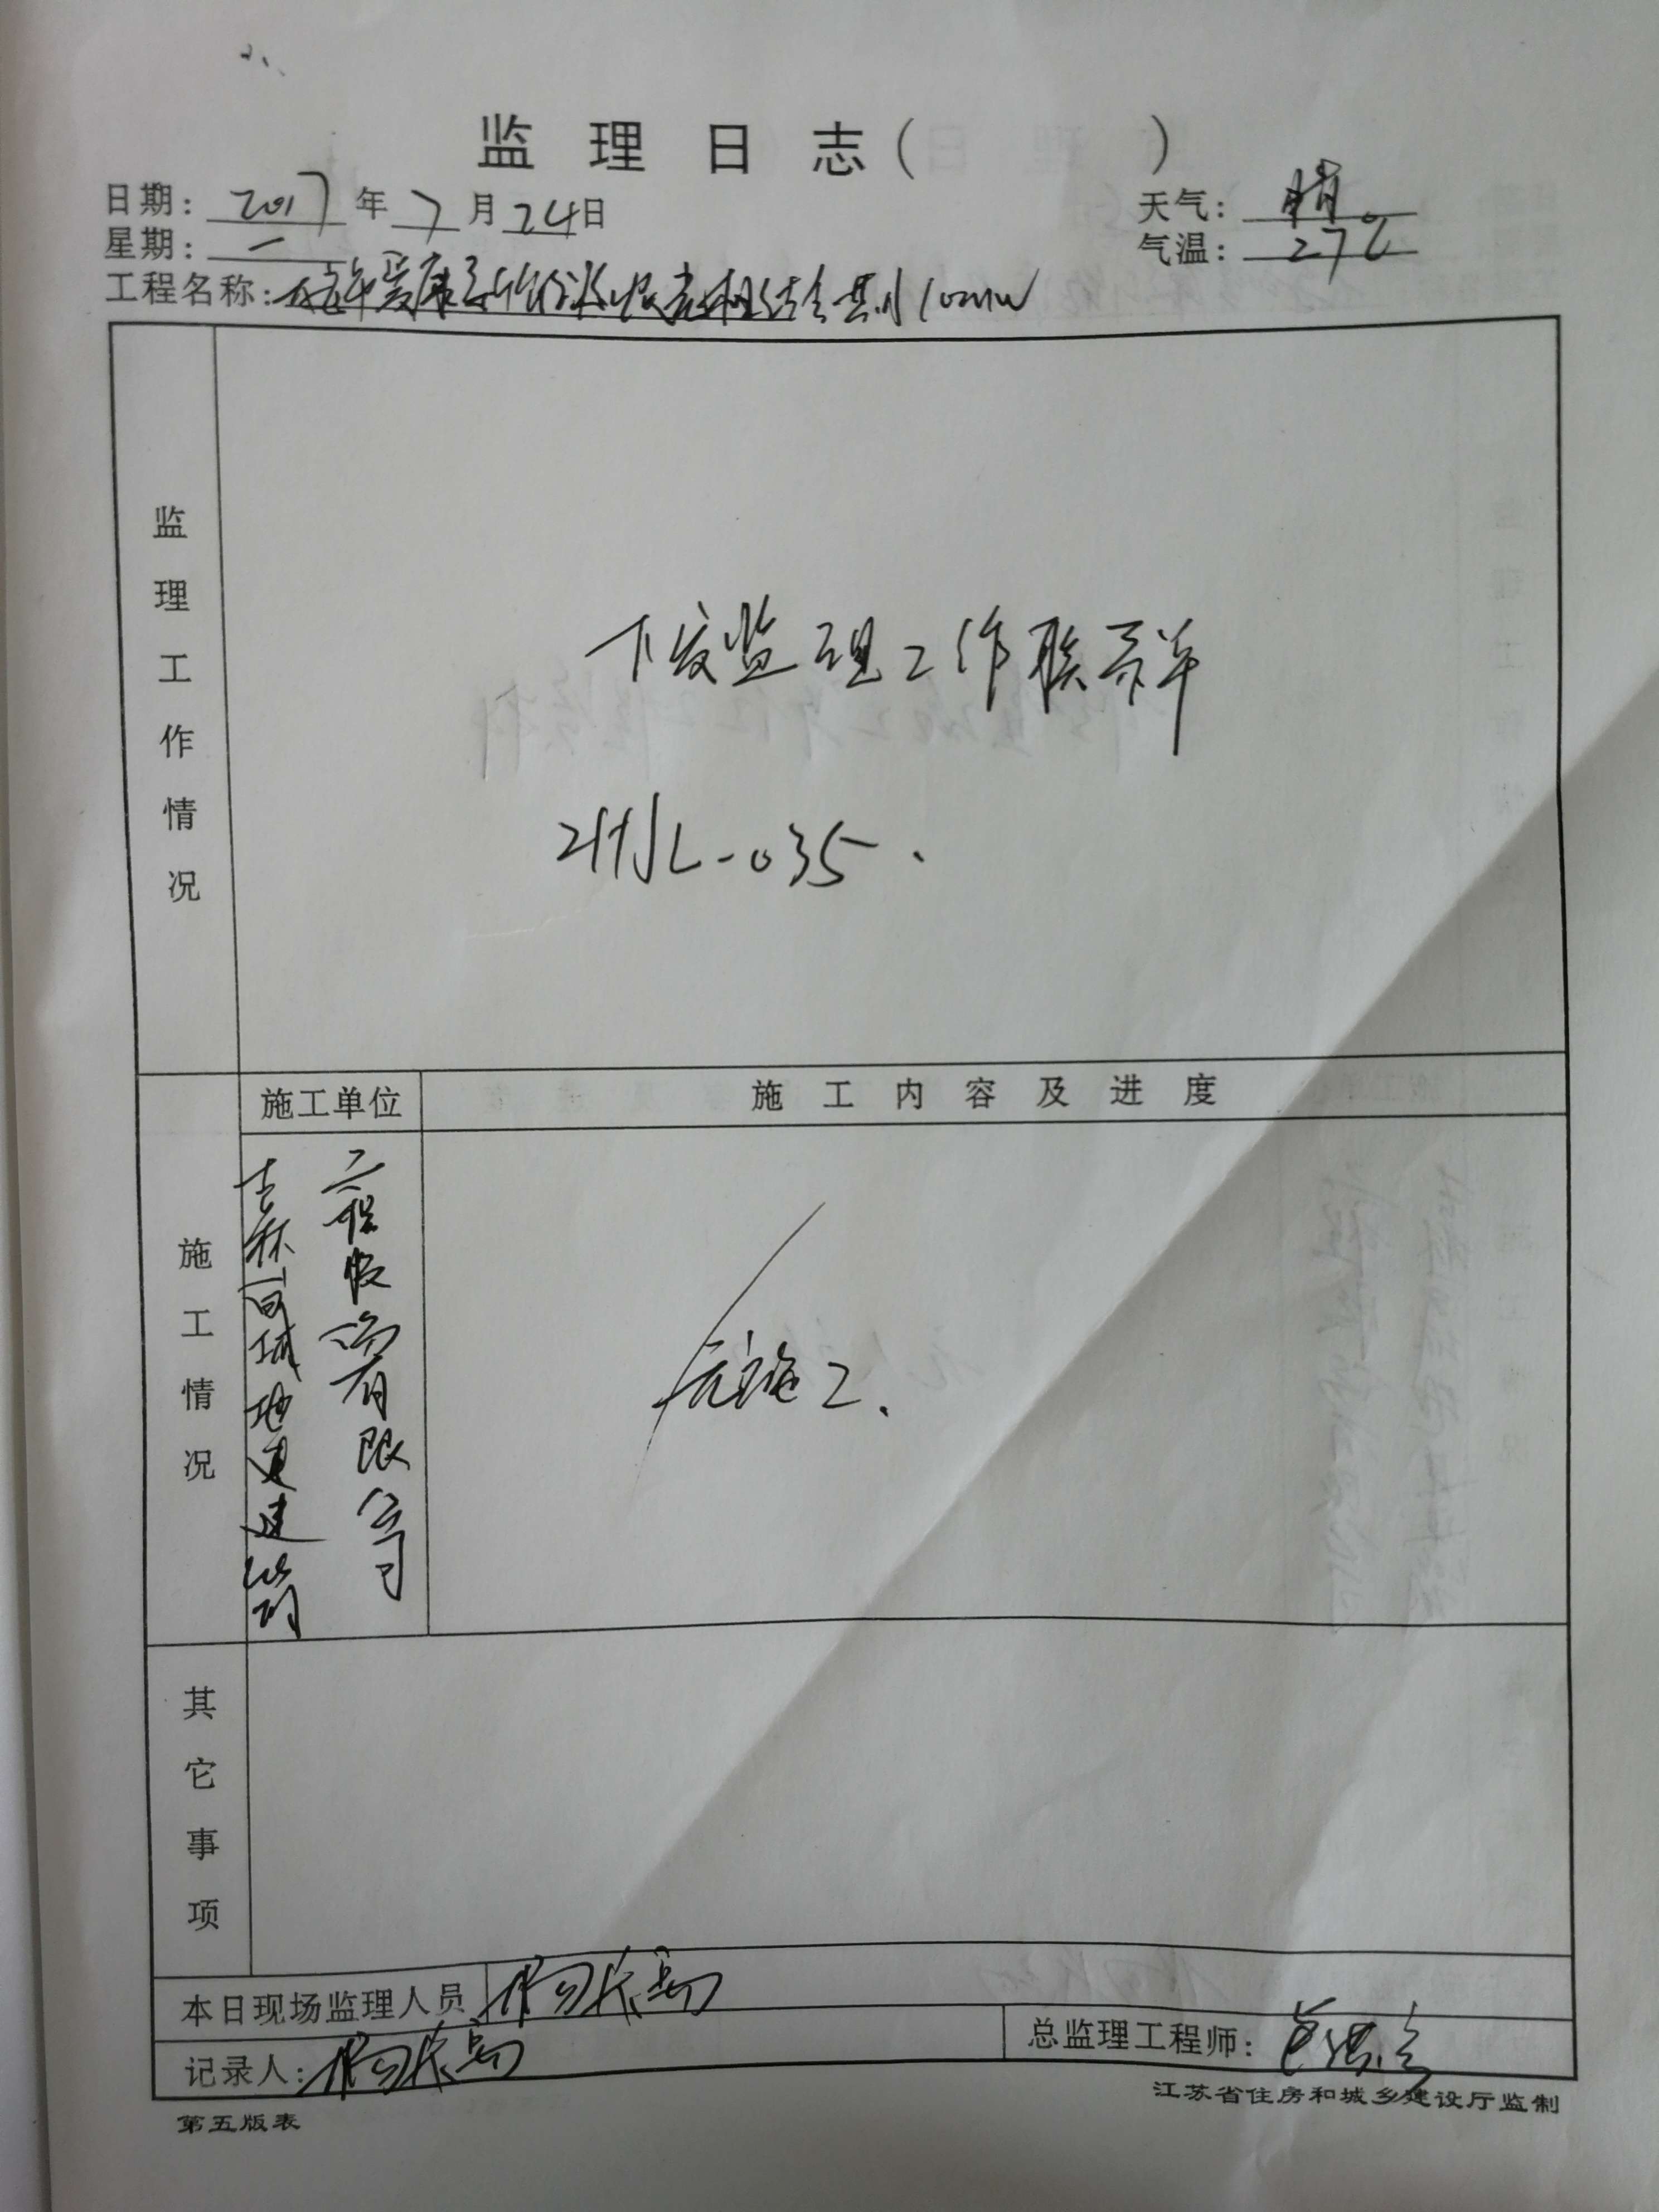 监理日志( )
日期: 2017年7月24日
天气: 晴
星期: 一
气温: 27℃
工程名称: 爱康 结合 10MW
监理工作情况
下发监理工作联系单
JL-035.
施工单位
施工内容及进度
施工情况
吉林 城地建建筑
工程股份有限公司
无施工.
其它事项
本日现场监理人员
记录人:
总监理工程师:
江苏省住房和城乡建设厅监制
第五版表